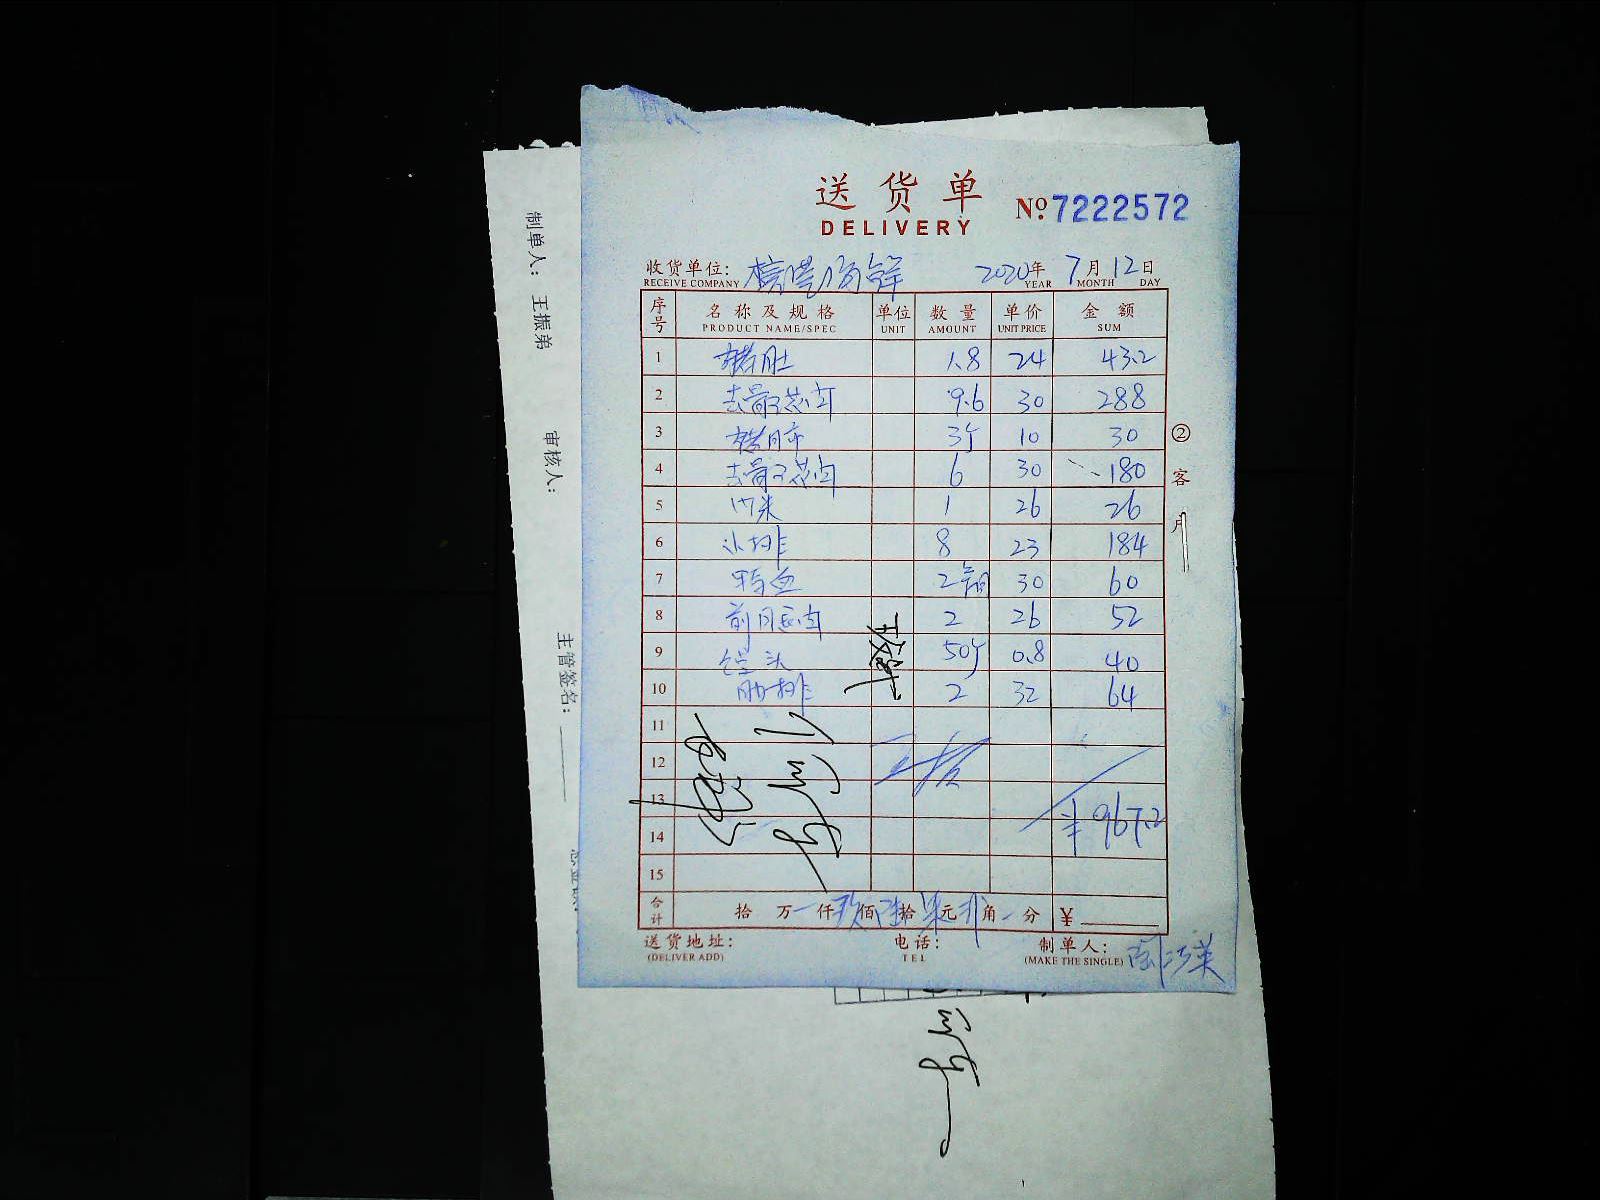 送货单
DELIVERY
№ 7222572
收货单位:
RECEIVE COMPANY
2020年 7月 12日
YEAR MONTH DAY
序号 名称及规格 单位 数量 单价 金额
PRODUCT NAME/SPEC UNIT AMOUNT UNIT PRICE SUM
1 猪肚 1.8 24 43.2
2 去骨芯肉 9.6 30 288
3 猪肺 3个 10 30
4 去骨芯肉 6 30 180
5 26 26
6 小排 8 23 184
7 30 60
8 前腿肉 2 26 52
9 馒头 50个 0.8 40
10 肋排 2 32 64
11
12
13
¥967.2
14
15
合计 拾 万 仟 玖佰 陆拾 柒元 贰角 分 ¥
送货地址: 电话: 制单人:
(DELIVER ADD) TEL (MAKE THE SINGLE)
②客
制单人: 王振弟
审核人:
主管签名: